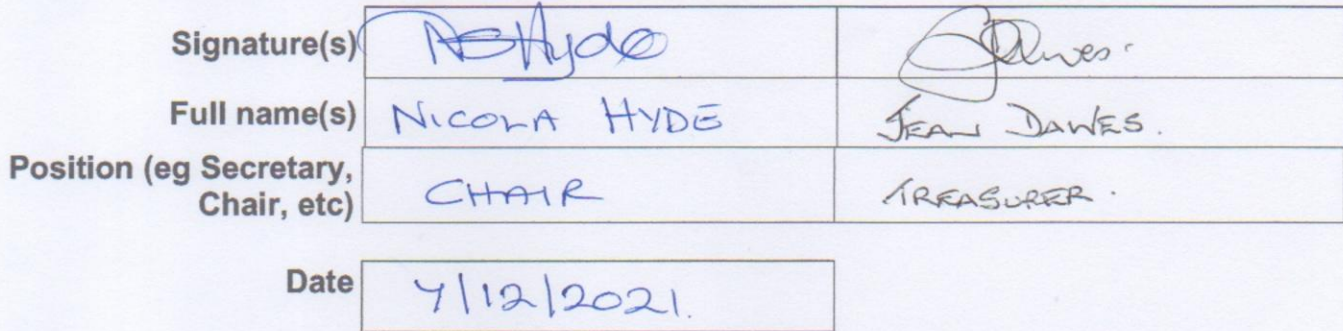 Signature(s) NSHyde JDawes.
Full name(s) NICOLA HYDE JEAN DAWES.
Position (eg Secretary,
Chair, etc) CHAIR TREASURER.
Date 7/12/2021.